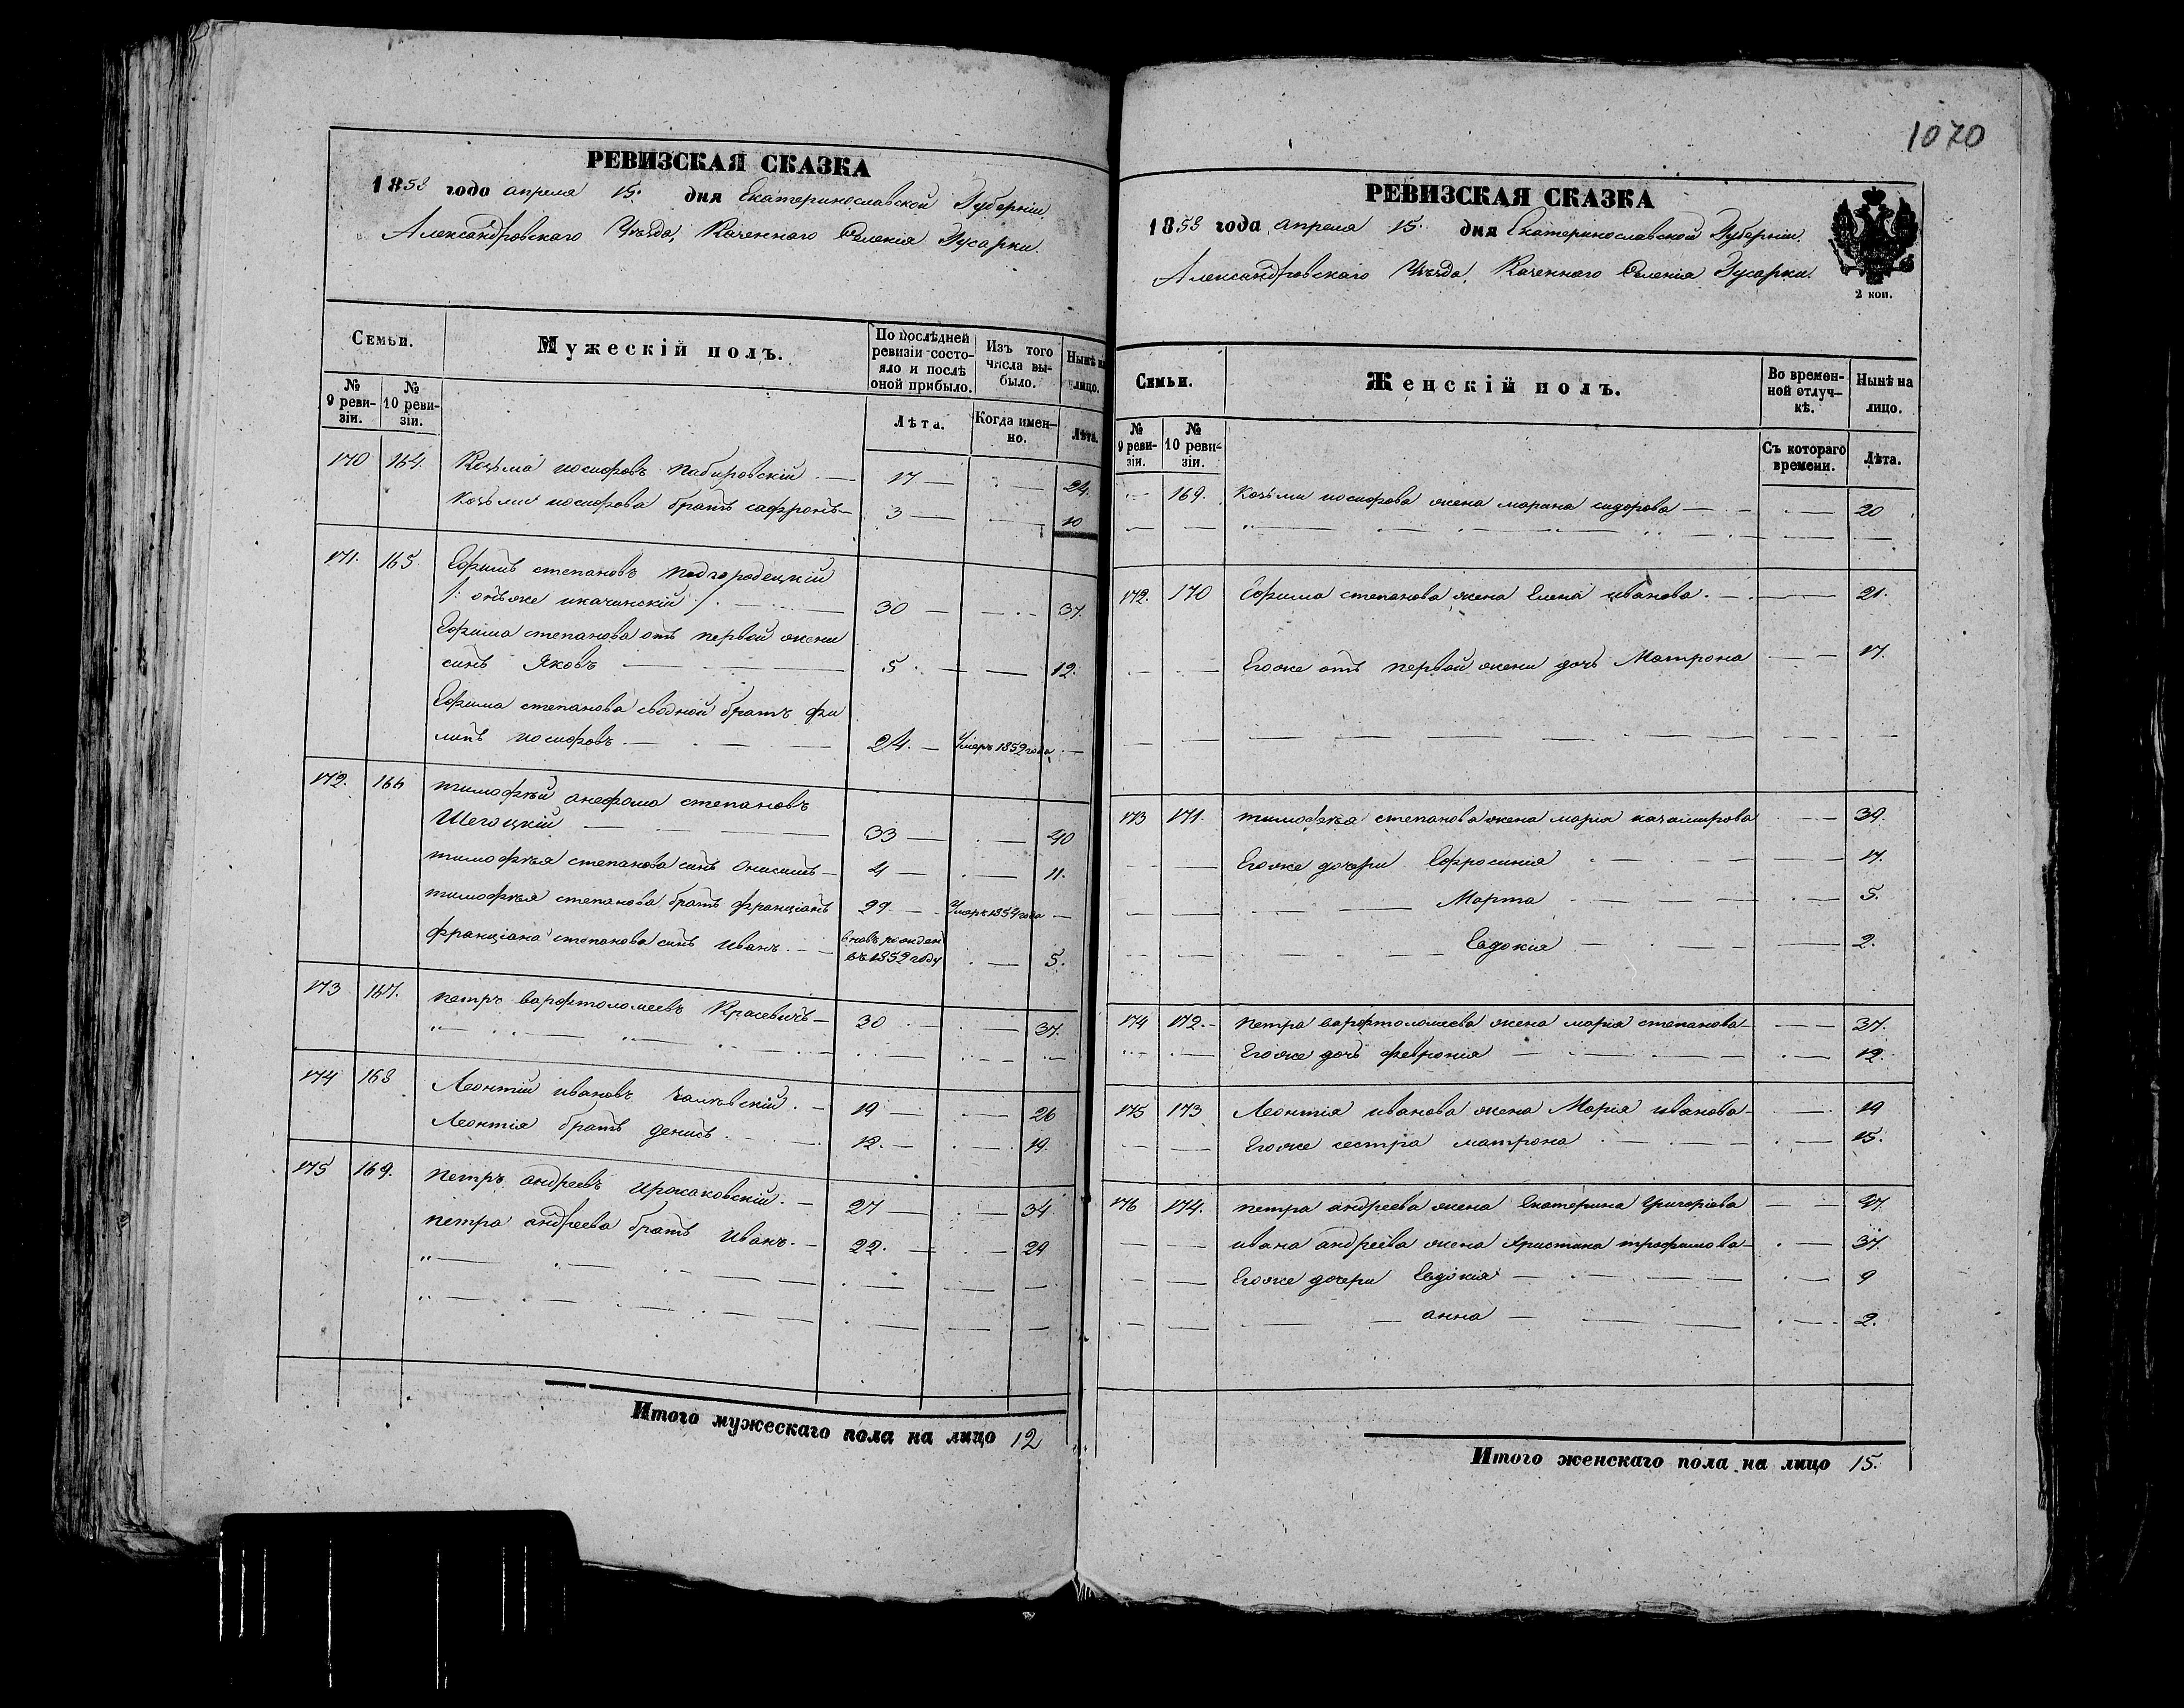 РЕВИЗСКАЯ СКАЗКА
1858 года апреля 15. дня Екатеринославской Губерніи
Александровскаго Уѣзда, Казеннаго Селенія Гусарки.
Семьи.
Мужескій полъ.
По послѣдней ревизіи состояло и послѣ оной прибыло.
Изъ того числа выбыло.
Нынѣ на лицо.
№ 9 ревизіи.
№ 10 ревизіи.
Лѣта.
Когда именно.
Лѣта.
170 164. Козьма иосифовъ — 17 — 24.
Козьми иосифова братъ сафронъ — 3 — 10
171. 165. Ефимъ степановъ подгородецкій
/: онъже :/ — 30 — 37.
Ефима степанова отъ первой жени
синъ Яковъ — 5. — 12.
Ефима степанова сводной братъ фи
липъ иосифовъ. — 24. — Умеръ 1852 года —
172. 166 тимофѣй анефома степановъ
Шегоцкій — 33 — 40
тимофѣя степанова синъ Онисимъ — 4 — 11.
тимофѣя степанова братъ францiанъ 29. — Умеръ 1854 года —
францiана степанова синъ Иванъ. — вновь рожденъ
въ 1852 году — 5.
173 167. петръ варфтоломеевъ Красевичъ — 30 — 37.
174 168 Леонтій ивановъ — 19 — 26
Леонтія братъ денисъ. — 12. — 19.
175 169. петръ андреевъ — 27 — 34
петра андреева братъ Иванъ. — 22. — 29
Итого мужескаго пола на лицо 12
1070
РЕВИЗСКАЯ СКАЗКА
1858 года апреля 15. дня Екатеринославской Губерніи.
Александровскаго Уѣзда, Казеннаго Селенія Гусарки.
2 коп.
Семьи.
Женскій полъ.
Во временной отлучкѣ.
Нынѣ на лицо.
№ 9 ревизіи.
№ 10 ревизіи.
Съ котораго времени.
Лѣта.
169. Козьми иосифова жена марина сидорова — 20
172. 170 Ефима степанова жена Елена иванова. — 21.
Егоже отъ первой жени дочь Матрона — 17.
173 171. тимофѣа степанова жена марія казимирова — 39.
Егоже дочери Ефросинія — 17.
Марта — 5.
Евдокия — 2.
174 172. — петра варфтоломеева жена марія степанова — 37.
Егоже дочь феврония — 12.
175 173 Леонтія иванова жена Марія иванова — 19
Егоже сестра матрона — 15.
176 174. петра андреева жена Екатерина Григориева — 27.
ивана андреева жена Христина трофимова — 37.
Егоже дочери Евдокия — 9
анна — 2.
Итого женскаго пола на лицо 15.